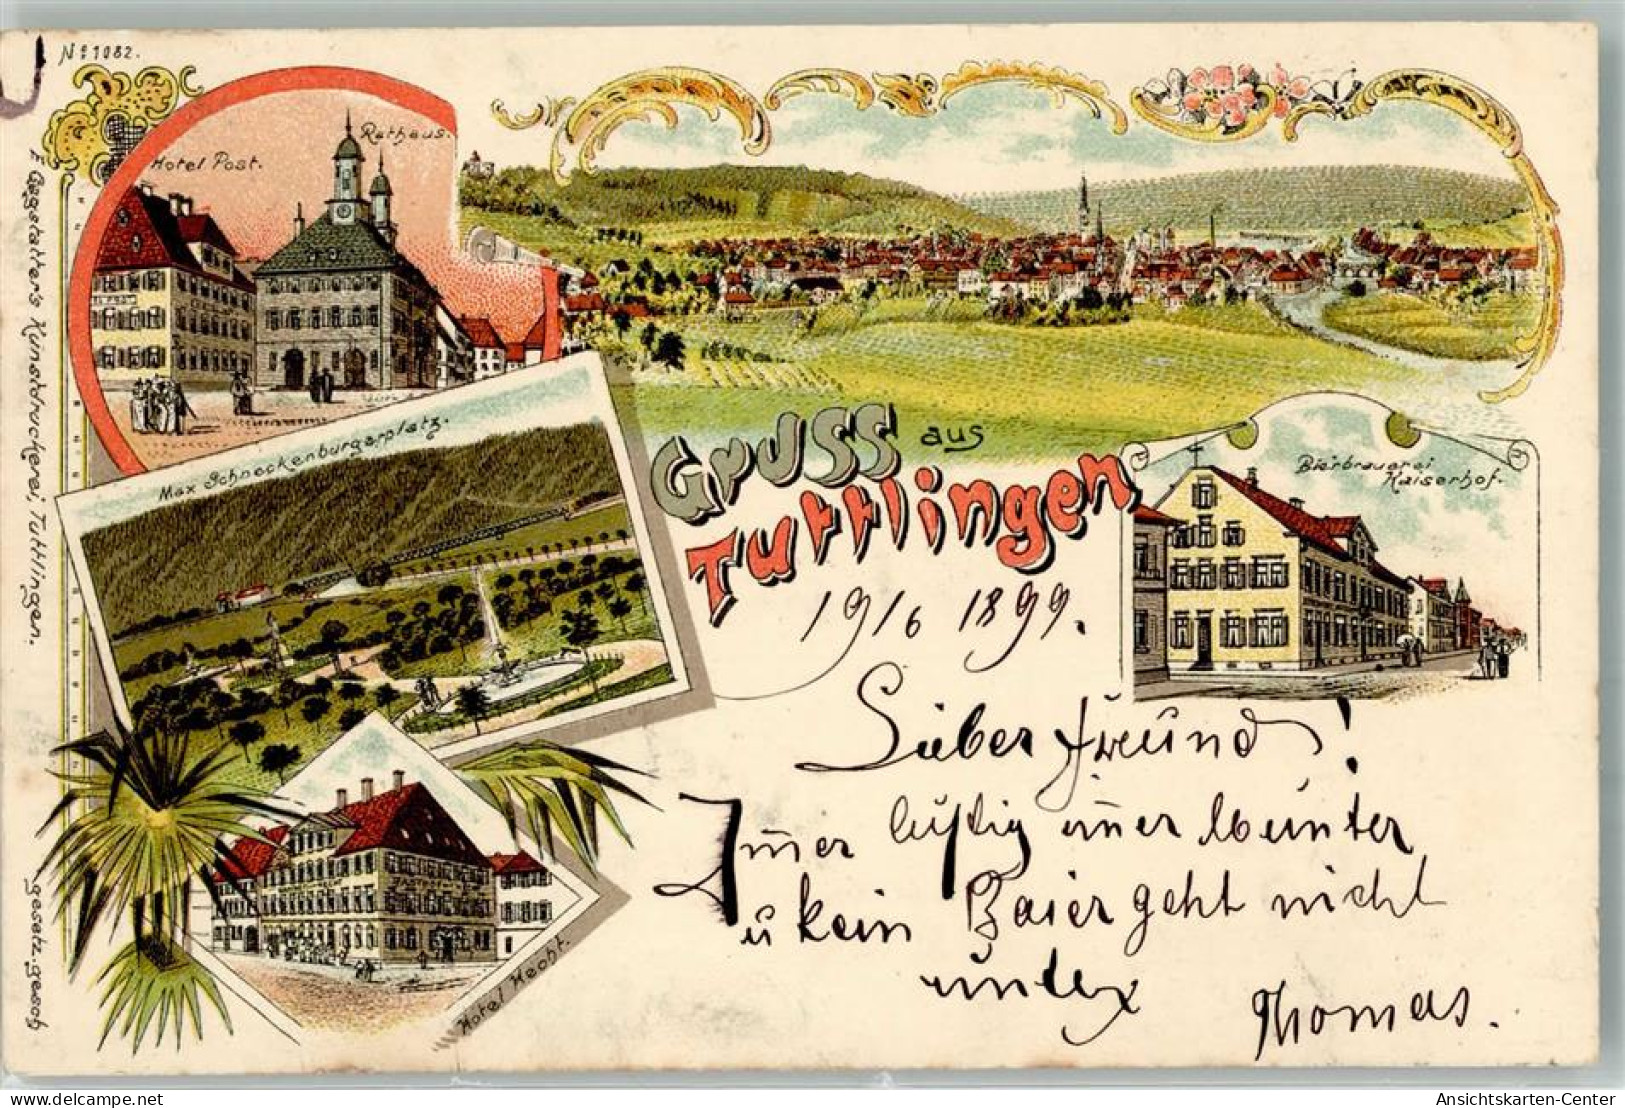 Nº 1082.
Hotel Post.
Rathaus.
Max Schneckenburgerplatz.
Gruss aus
Tuttlingen
Bierbrauerei
Kaiserhof.
Hotel Hecht.
F. Geggstatter's Kunstdruckerei, Tuttlingen.
gesetz. gesch
19/6 1899.
Lieber Freund!
Imer lustig imer Munter
u kein Baier geht nicht
unter
Thomas.
Ansichtskarten-Center